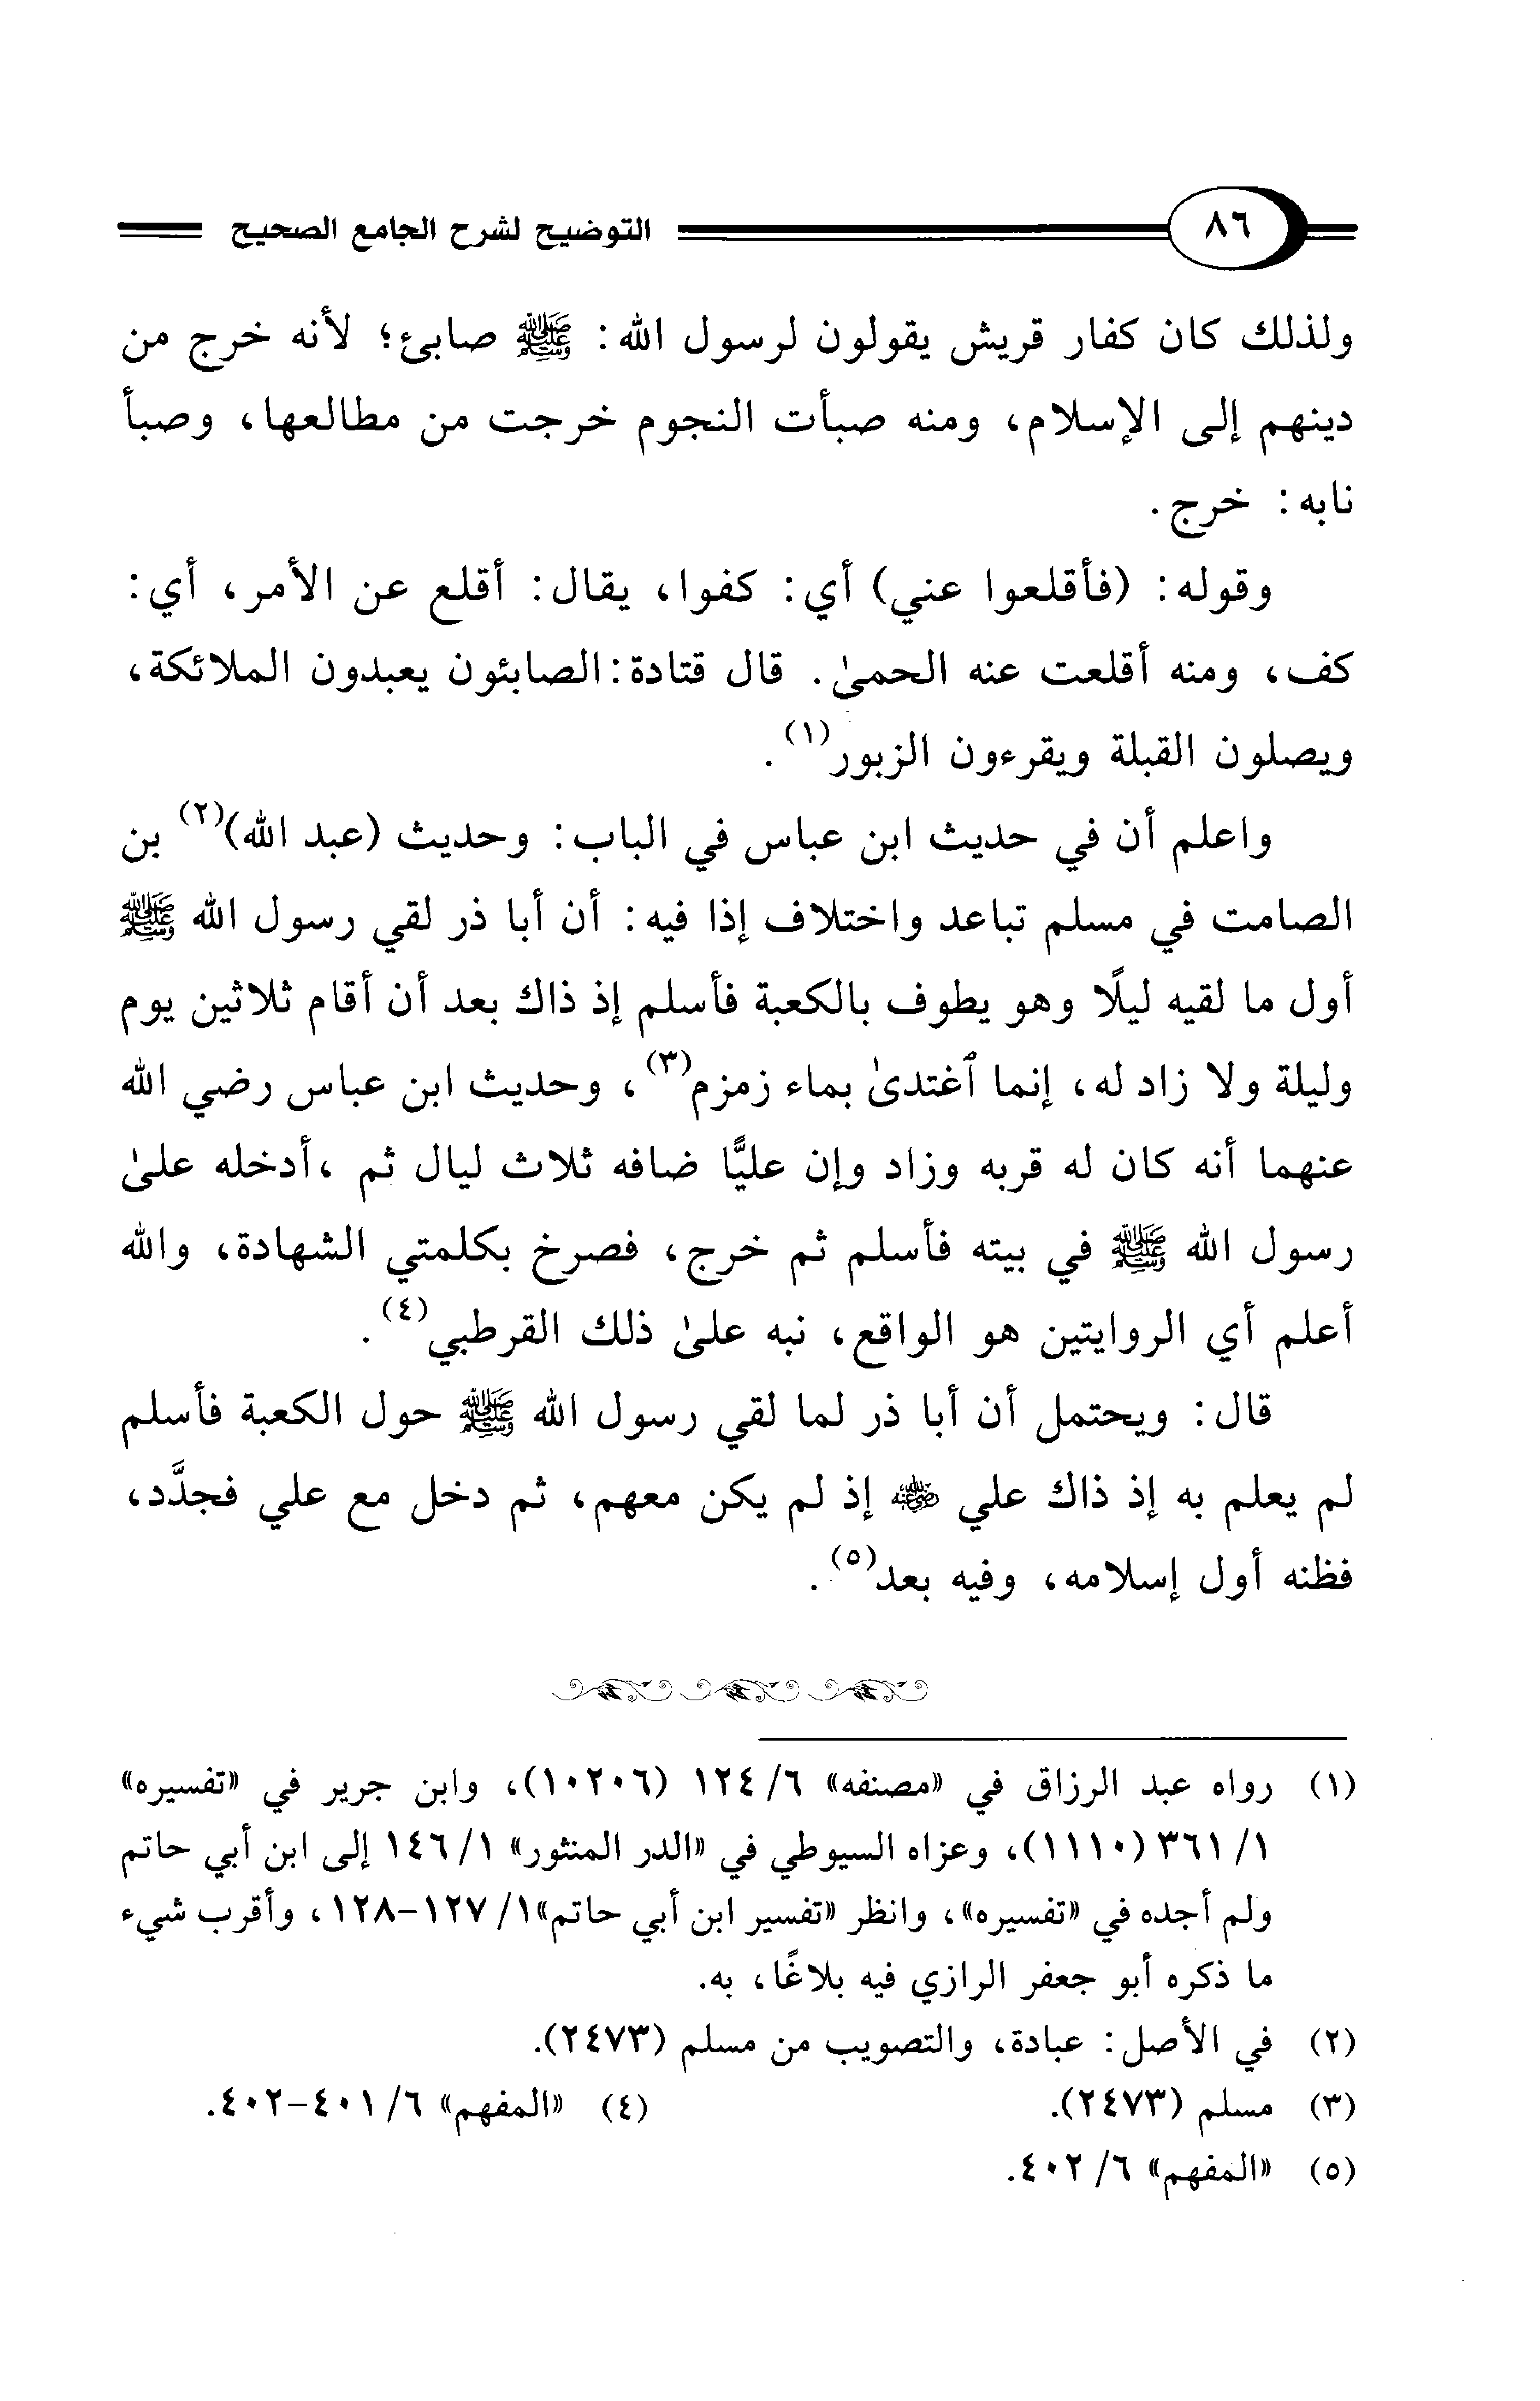 ٨٦
التوضيح لشرح الجامع الصحيح
ولذلك كان كفار قريش يقولون لرسول الله: ﷺ صابئ؛ لأنه خرج من
دينهم إلى الإسلام، ومنه صبأت النجوم خرجت من مطالعها، وصبأ
نابه: خرج.
وقوله: (فأقلعوا عني) أي: كفوا، يقال: أقلع عن الأمر، أي:
كف، ومنه أقلعت عنه الحمىٰ. قال قتادة: الصابئون يعبدون الملائكة،
ويصلون القبلة ويقرءون الزبور(١).
واعلم أن في حديث ابن عباس في الباب: وحديث (عبد الله)(٢) بن
الصامت في مسلم تباعد واختلاف إذا فيه: أن أبا ذر لقي رسول الله ﷺ
أول ما لقيه ليلًا وهو يطوف بالكعبة فأسلم إذ ذاك بعد أن أقام ثلاثين يوم
وليلة ولا زاد له، إنما ٱغتدىٰ بماء زمزم(٣)، وحديث ابن عباس رضي الله
عنهما أنه كان له قربه وزاد وإن عليًّا ضافه ثلاث ليال ثم ،أدخله علىٰ
رسول الله ﷺ في بيته فأسلم ثم خرج، فصرخ بكلمتي الشهادة، والله
أعلم أي الروايتين هو الواقع، نبه علىٰ ذلك القرطبي(٤).
قال: ويحتمل أن أبا ذر لما لقي رسول الله ﷺ حول الكعبة فأسلم
لم يعلم به إذ ذاك علي رضي الله عنه إذ لم يكن معهم، ثم دخل مع علي فجدَّد،
فظنه أول إسلامه، وفيه بعد(٥).
(١) رواه عبد الرزاق في «مصنفه» ٦/ ١٢٤ (١٠٢٠٦)، وابن جرير في «تفسيره»
١/ ٣٦١ (١١١٠)، وعزاه السيوطي في «الدر المنثور» ١/ ١٤٦ إلى ابن أبي حاتم
ولم أجده في «تفسيره»، وانظر «تفسير ابن أبي حاتم»١/ ١٢٧-١٢٨، وأقرب شيء
ما ذكره أبو جعفر الرازي فيه بلاغًا، به.
(٢) في الأصل: عبادة، والتصويب من مسلم (٢٤٧٣).
(٣) مسلم (٢٤٧٣). (٤) «المفهم» ٦/ ٤٠١-٤٠٢.
(٥) «المفهم» ٦/ ٤٠٢.